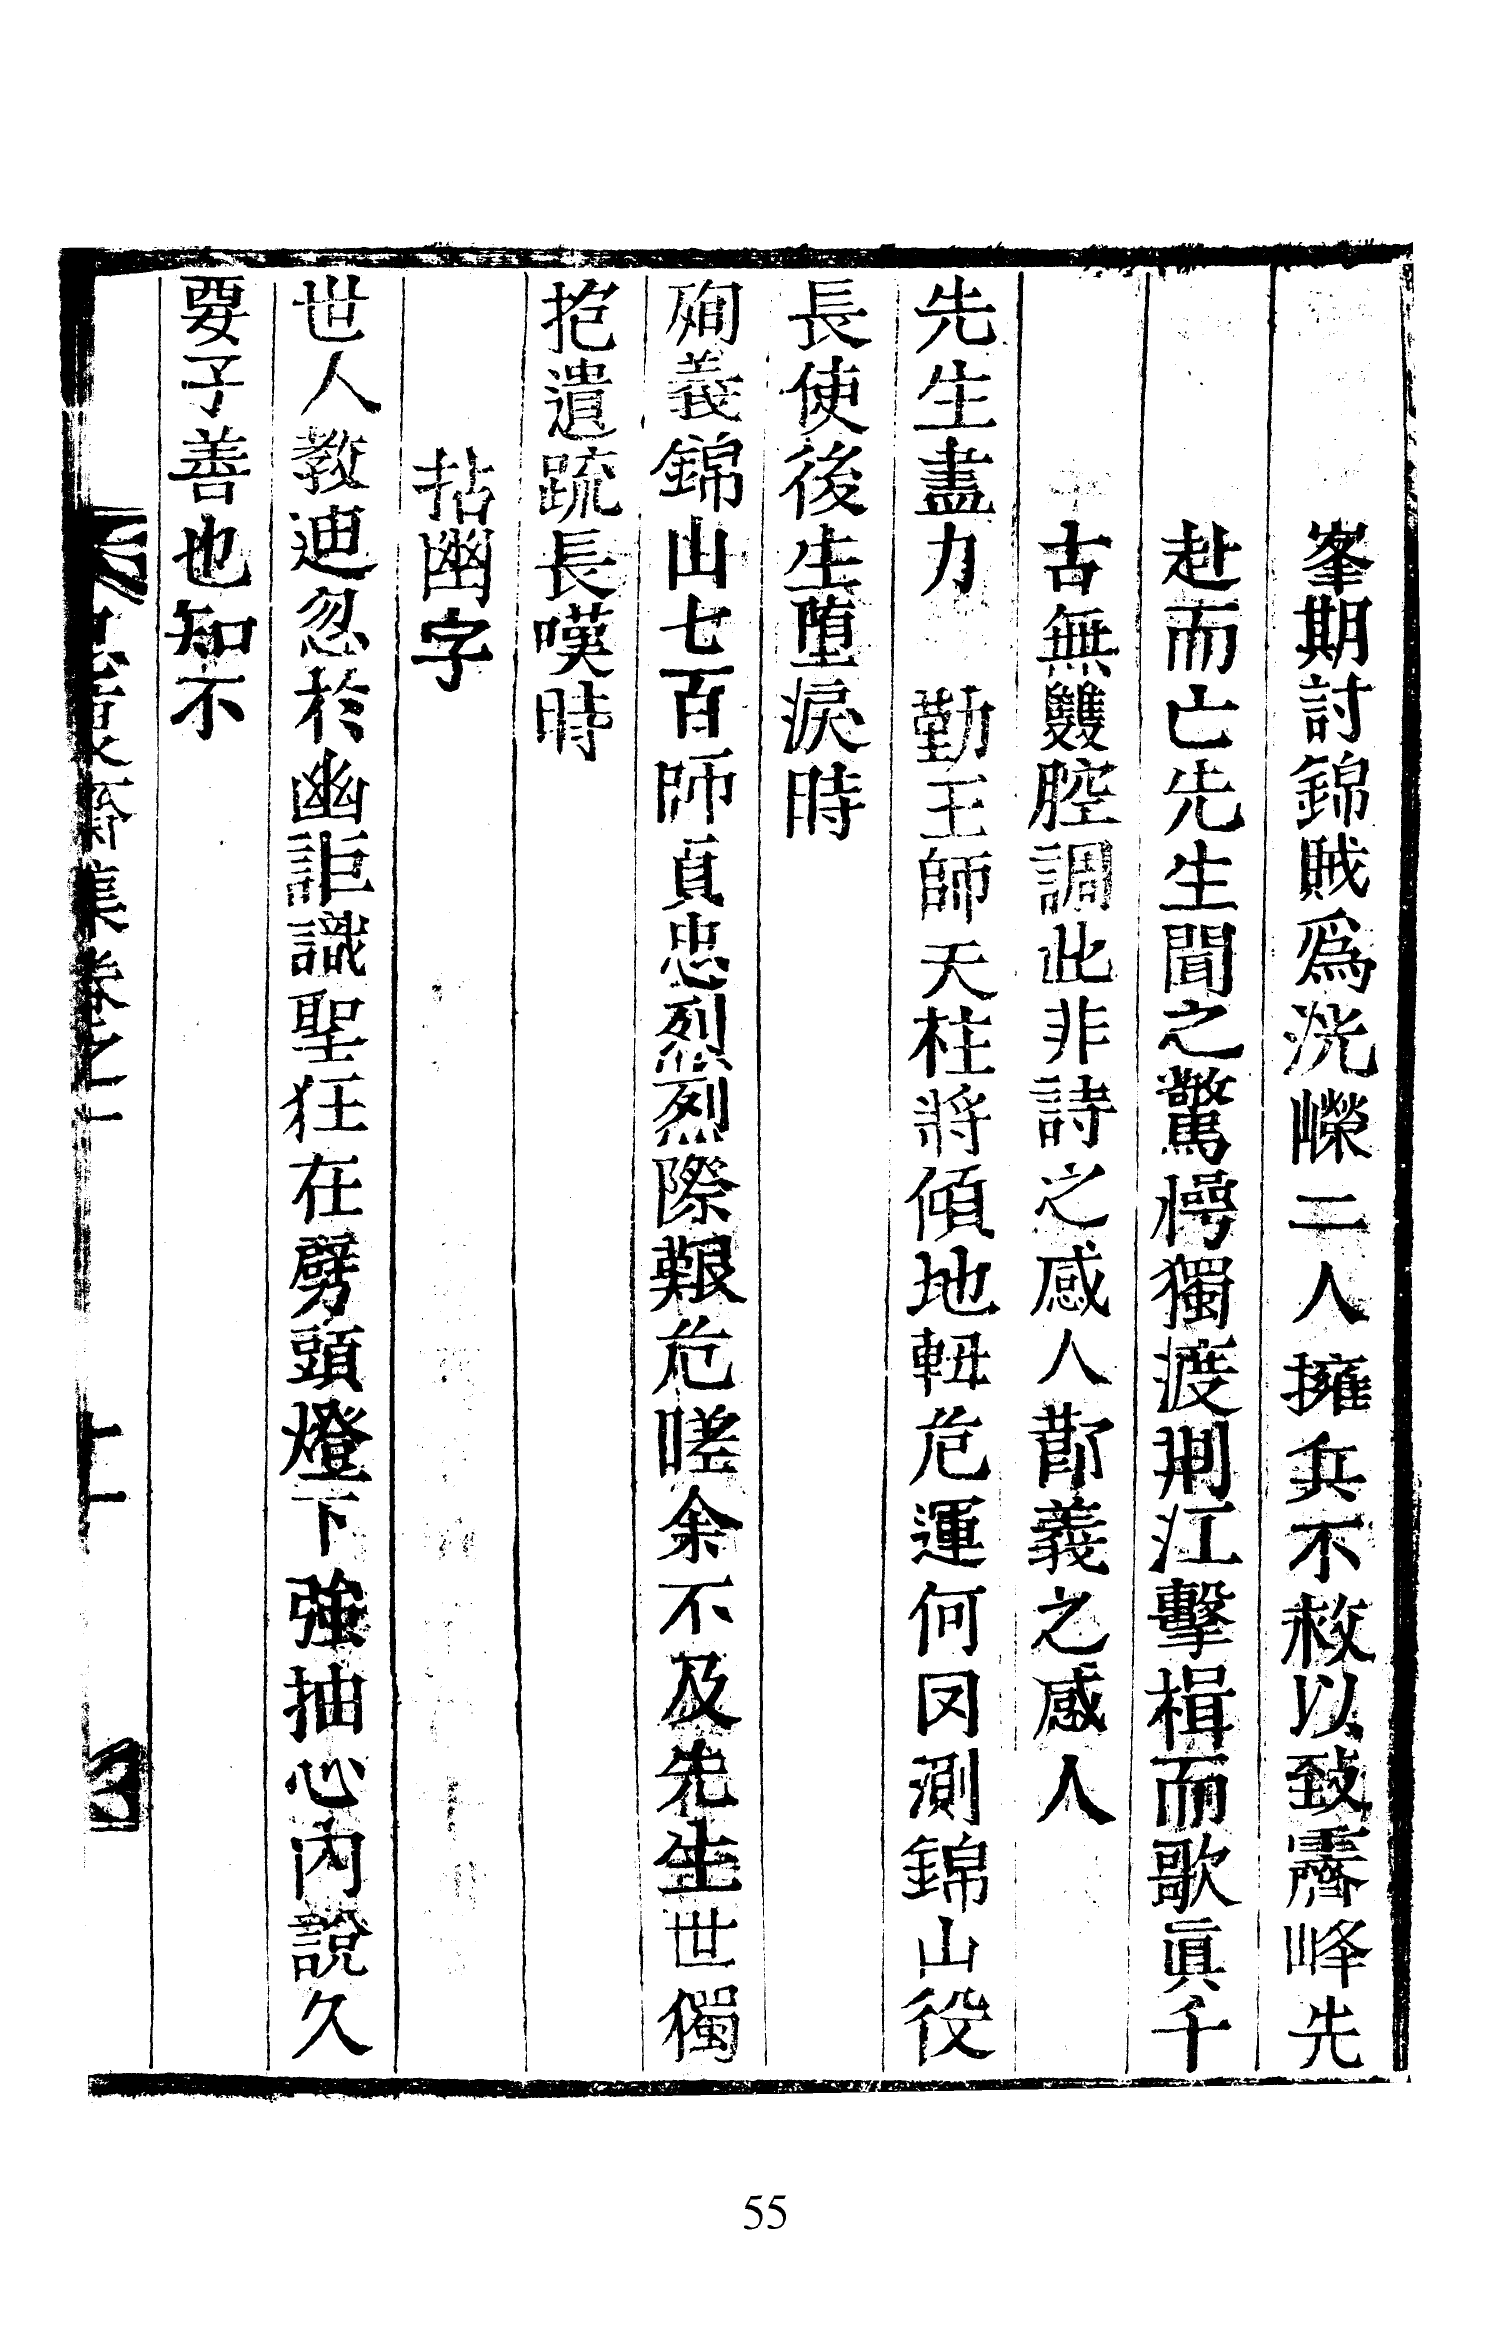 峯期討錦賊爲洸嶸二人擁兵不救以致霽峰先
赴而亡先生聞之驚愕獨渡荆江擊楫而歌眞千
古無雙腔調此非詩之感人節義之感人
先生盡力 勤王師天柱將傾地軸危運何罔測錦山役
長使後生堕淚時
殉義錦山七百師貞忠烈烈際艱危嗟余不及先生世獨
抱遺䟽長嘆時
拈幽字
世人教迪忽於幽詎識聖狂在劈頭燈下強抽心內說久
要子善也知不
齋集卷之二
上
55